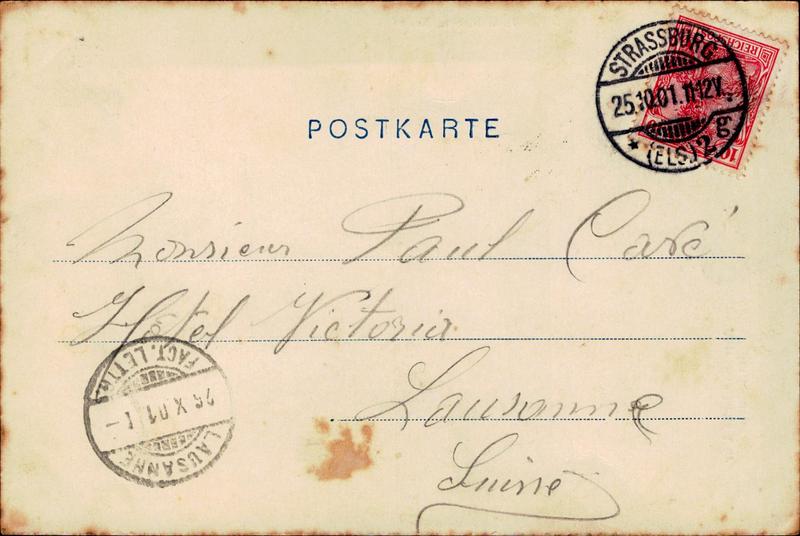 STRASSBURG
25.10.01.11-12V.
* (ELS.) 2 bg
REICHSPOST
10
POSTKARTE
Monsieur Paul Caré
Hotel Victoria
Lausanne
Suisse
FACT. LETTR.
26.X.01
LAUSANNE